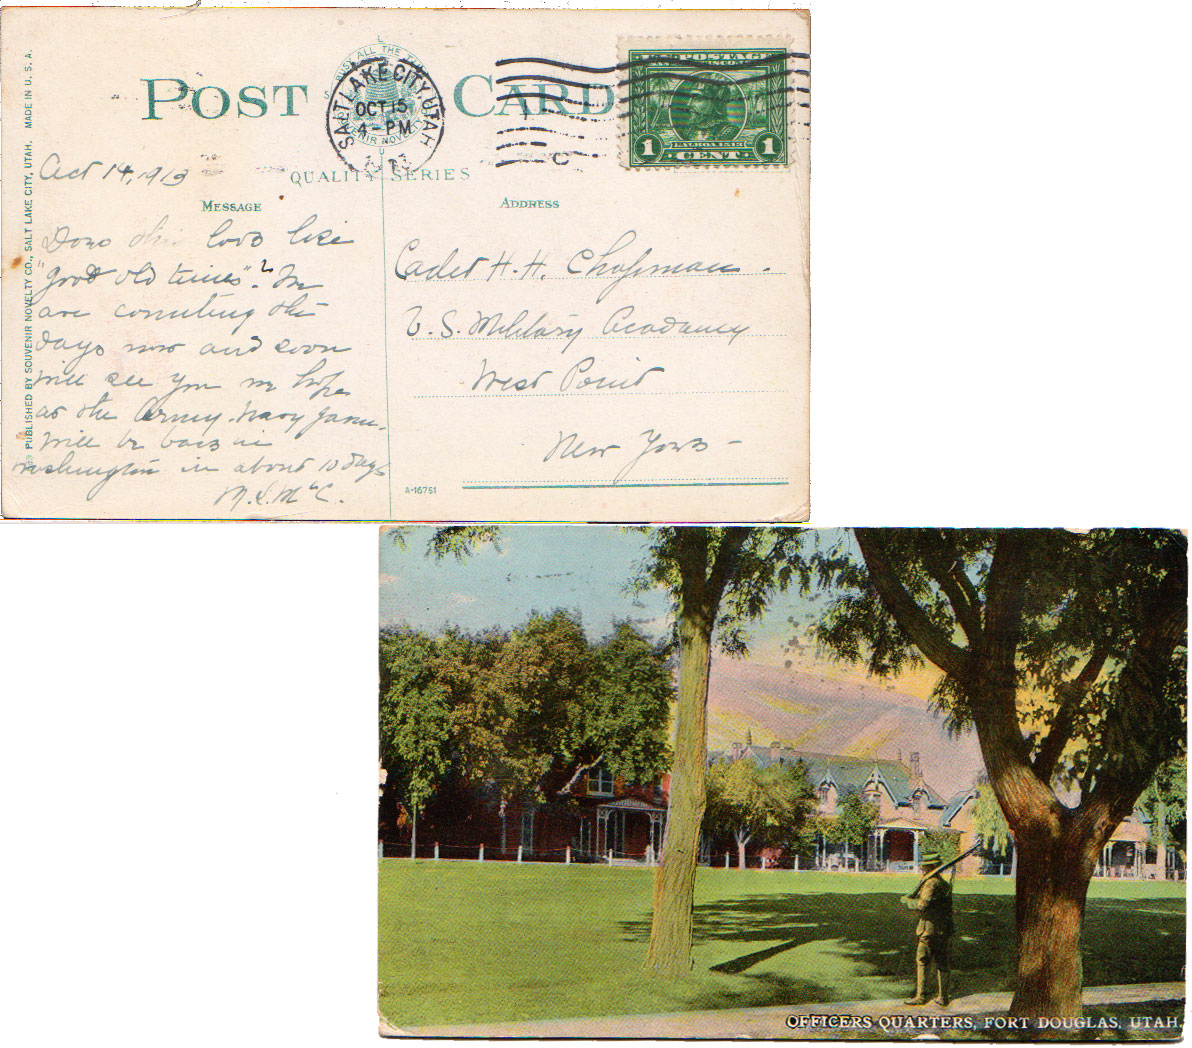 POST CARD
BUSY ALL THE TIME
SOUVENIR NOVELTY CO.
SALT LAKE CITY, UTAH
OCT 15
4-PM
1913
U.S. POSTAGE
BALBOA 1513
1 CENT 1
C
QUALITY SERIES
MESSAGE
ADDRESS
PUBLISHED BY SOUVENIR NOVELTY CO., SALT LAKE CITY, UTAH. MADE IN U. S. A.
Oct 14, 1913
Does this look like
"good old times"? We
are counting the
days now and soon
will see you we hope
at the Army-Navy game.
Will be back in
Washington in about 10 days
M. L. McC.
Cadet H. H. Chapman.
U. S. Military Academy
West Point
New York -
A-16751
OFFICERS QUARTERS, FORT DOUGLAS, UTAH.